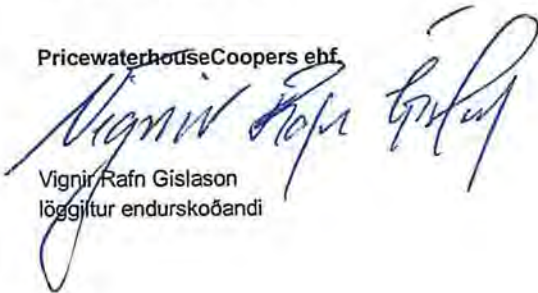 PricewaterhouseCoopers ehf.
Vignir Rafn Gíslason
Vignir Rafn Gíslason
löggiltur endurskoðandi